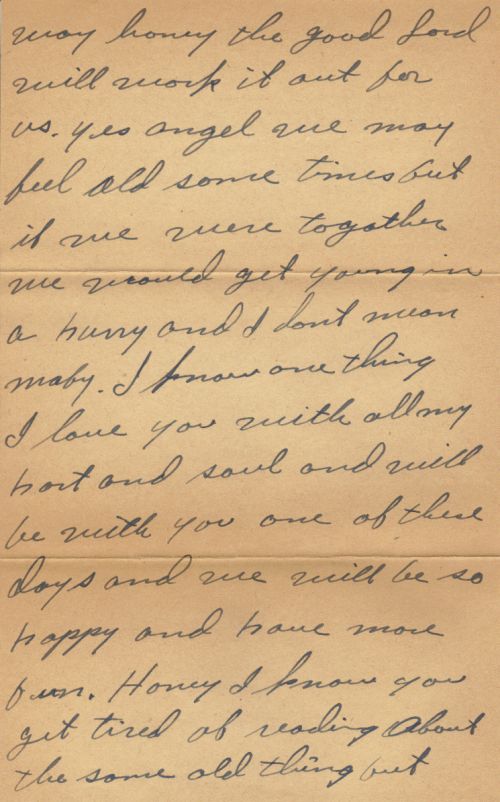 way honey the good Lord
will work it out for
us. yes angel we may
feel old some times but
if we were togather
we would get young in
a hurry and I dont mean
maby. I know one thing
I love you with all my
hart and soul and will
be with you one of these
days and we will be so
happy and have more
fun. Honey I know you
get tired of reading about
the same old thing but